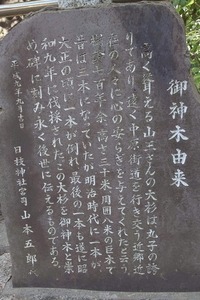 御神木由来
高く聳える山王さんの大杉は丸子の誇
りであり遠く中原街道を行き交う近郷近
在の人々に心の安らぎを与えてくれたと言う
樹令七百年余高さ三十米周囲八米の巨木で
昔は三本になっていたが明治時代に一本が
大正の頃に一本が倒れ最後の一本も遂に昭
和九年に伐採されたこの大杉を御神木と崇
め碑に刻み永く後世に伝えるものである。
平成 年九月吉日
日枝神社宮司 山本五郎